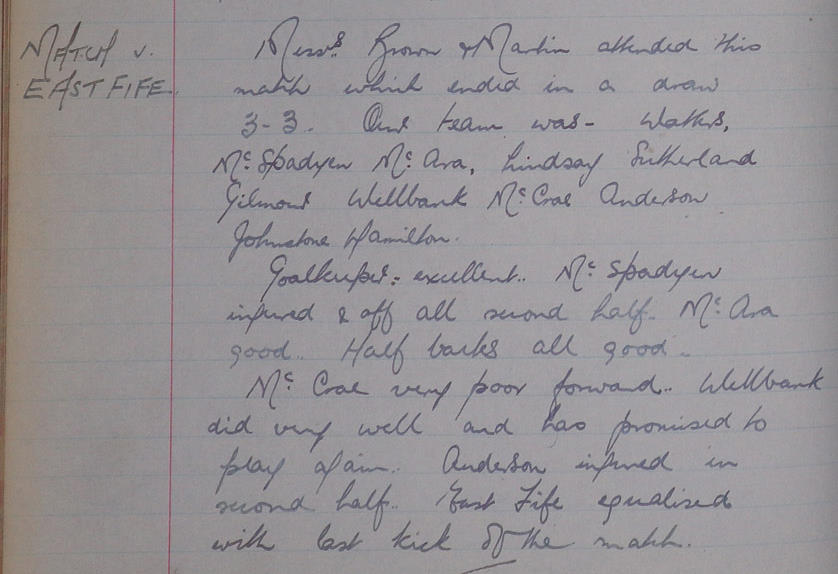 MATCH v.
EAST FIFE.
Messrs Brown & Martin attended this
match which ended in a draw
3-3. Our team was - Watters,
Mc Spadyen Mc Ara, Lindsay Sutherland
Gilmour Wellbank Mc Crae Anderson
Johnstone Hamilton.
Goalkeeper - excellent. Mc Spadyen
injured & off all second half. Mc Ara
good. Half backs all good.
Mc Crae very poor forward. Wellbank
did very well and has promised to
play again. Anderson injured in
second half. East Fife equalised
with last kick of the match.